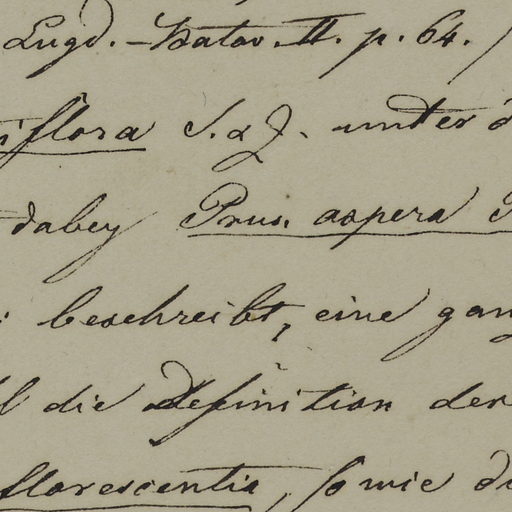 Lugd.-Batav. II. p. 64.
iflora S. & Z. unter d
dabey Prun. aspera T
: beschreibt, eine gan
l die Definition der
florescentia, so wie di